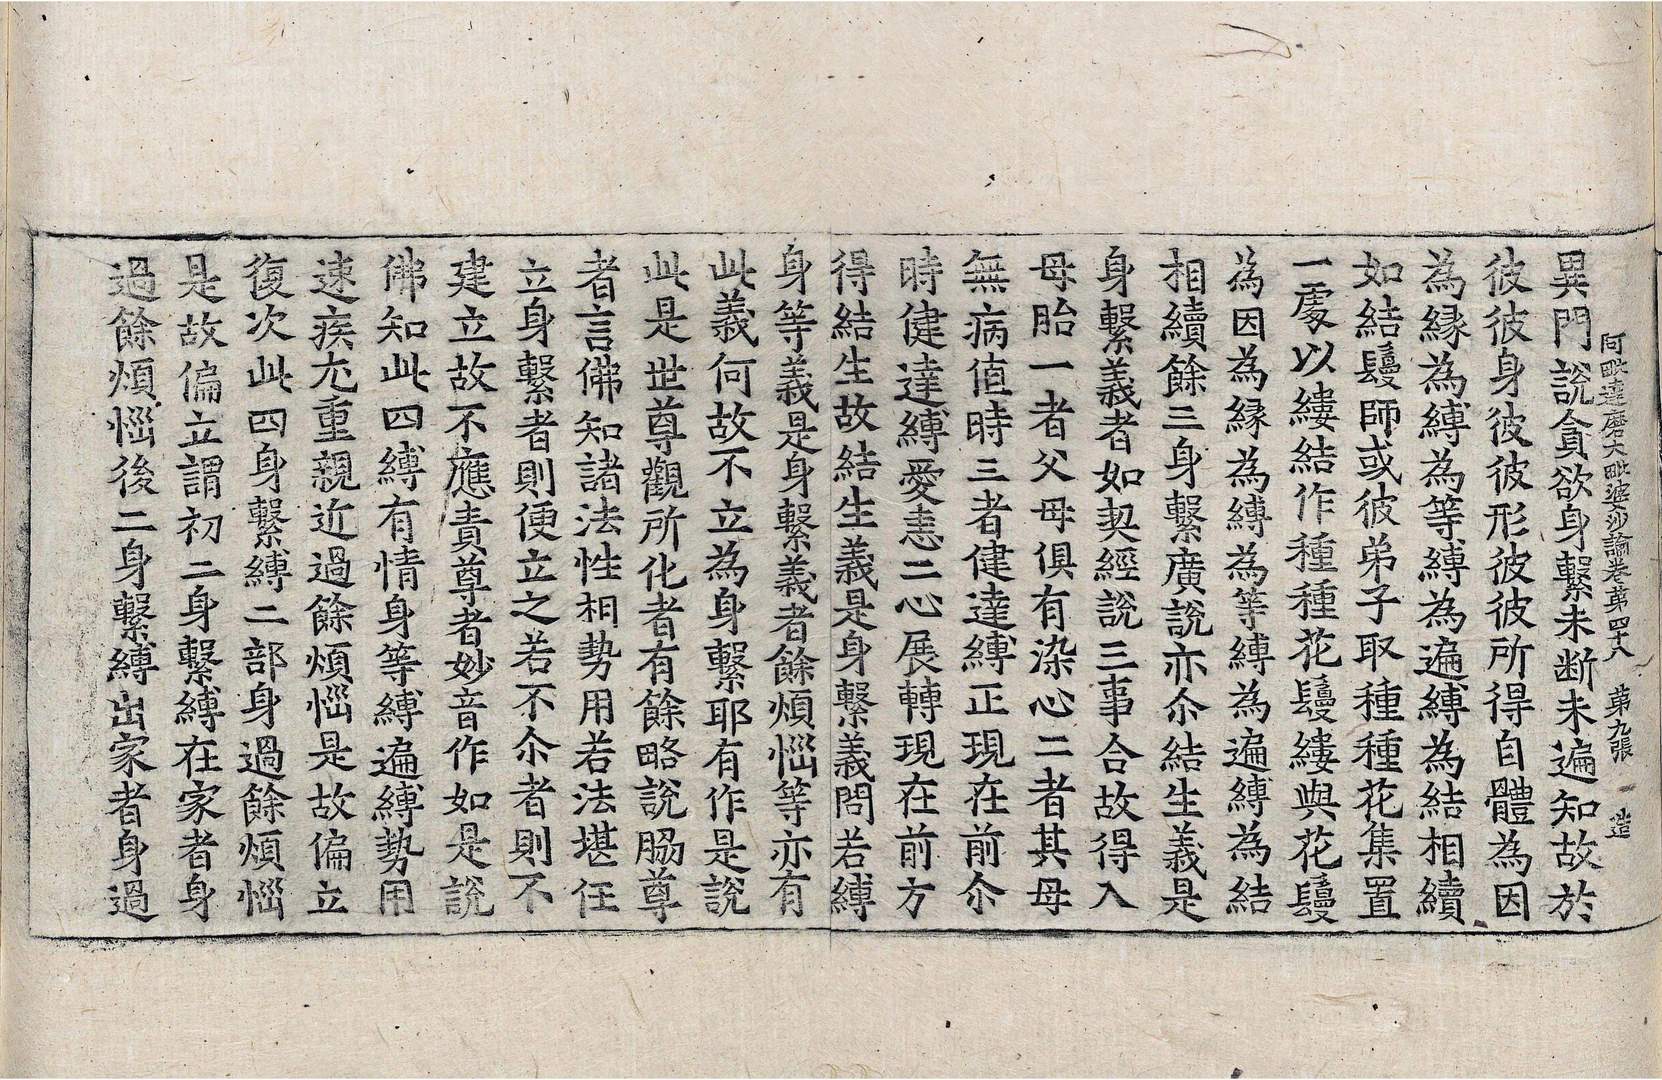 阿毗達磨大毗婆沙論卷第四十八　第九張　造
異門說貪欲身繫未断未遍知故於
彼彼身彼彼形彼彼所得自體為因
為緣為縛為等縛為遍縛為結相續
如結鬘師或彼弟子取種種花集置
一處以縷結作種種花鬘縷與花鬘
為因為緣為縛為等縛為遍縛為結
相續餘三身繫廣說亦尒結生義是
身繫義者如契經說三事合故得入
母胎一者父母俱有染心二者其母
無病值時三者健達縛正現在前尒
時健達縛愛恚二心展轉現在前方
得結生故結生義是身繫義問若縛
身等義是身繫義者餘煩惱等亦有
此義何故不立為身繫耶有作是說
此是世尊觀所化者有餘略說脇尊
者言佛知諸法性相勢用若法堪任
立身繫者則便立之若不尒者則不
建立故不應責尊者妙音作如是說
佛知此四縛有情身等縛遍縛勢用
速疾尤重親近過餘煩惱是故偏立
復次此四身繫縛二部身過餘煩惱
是故偏立謂初二身繫縛在家者身
過餘煩惱後二身繫縛出家者身過